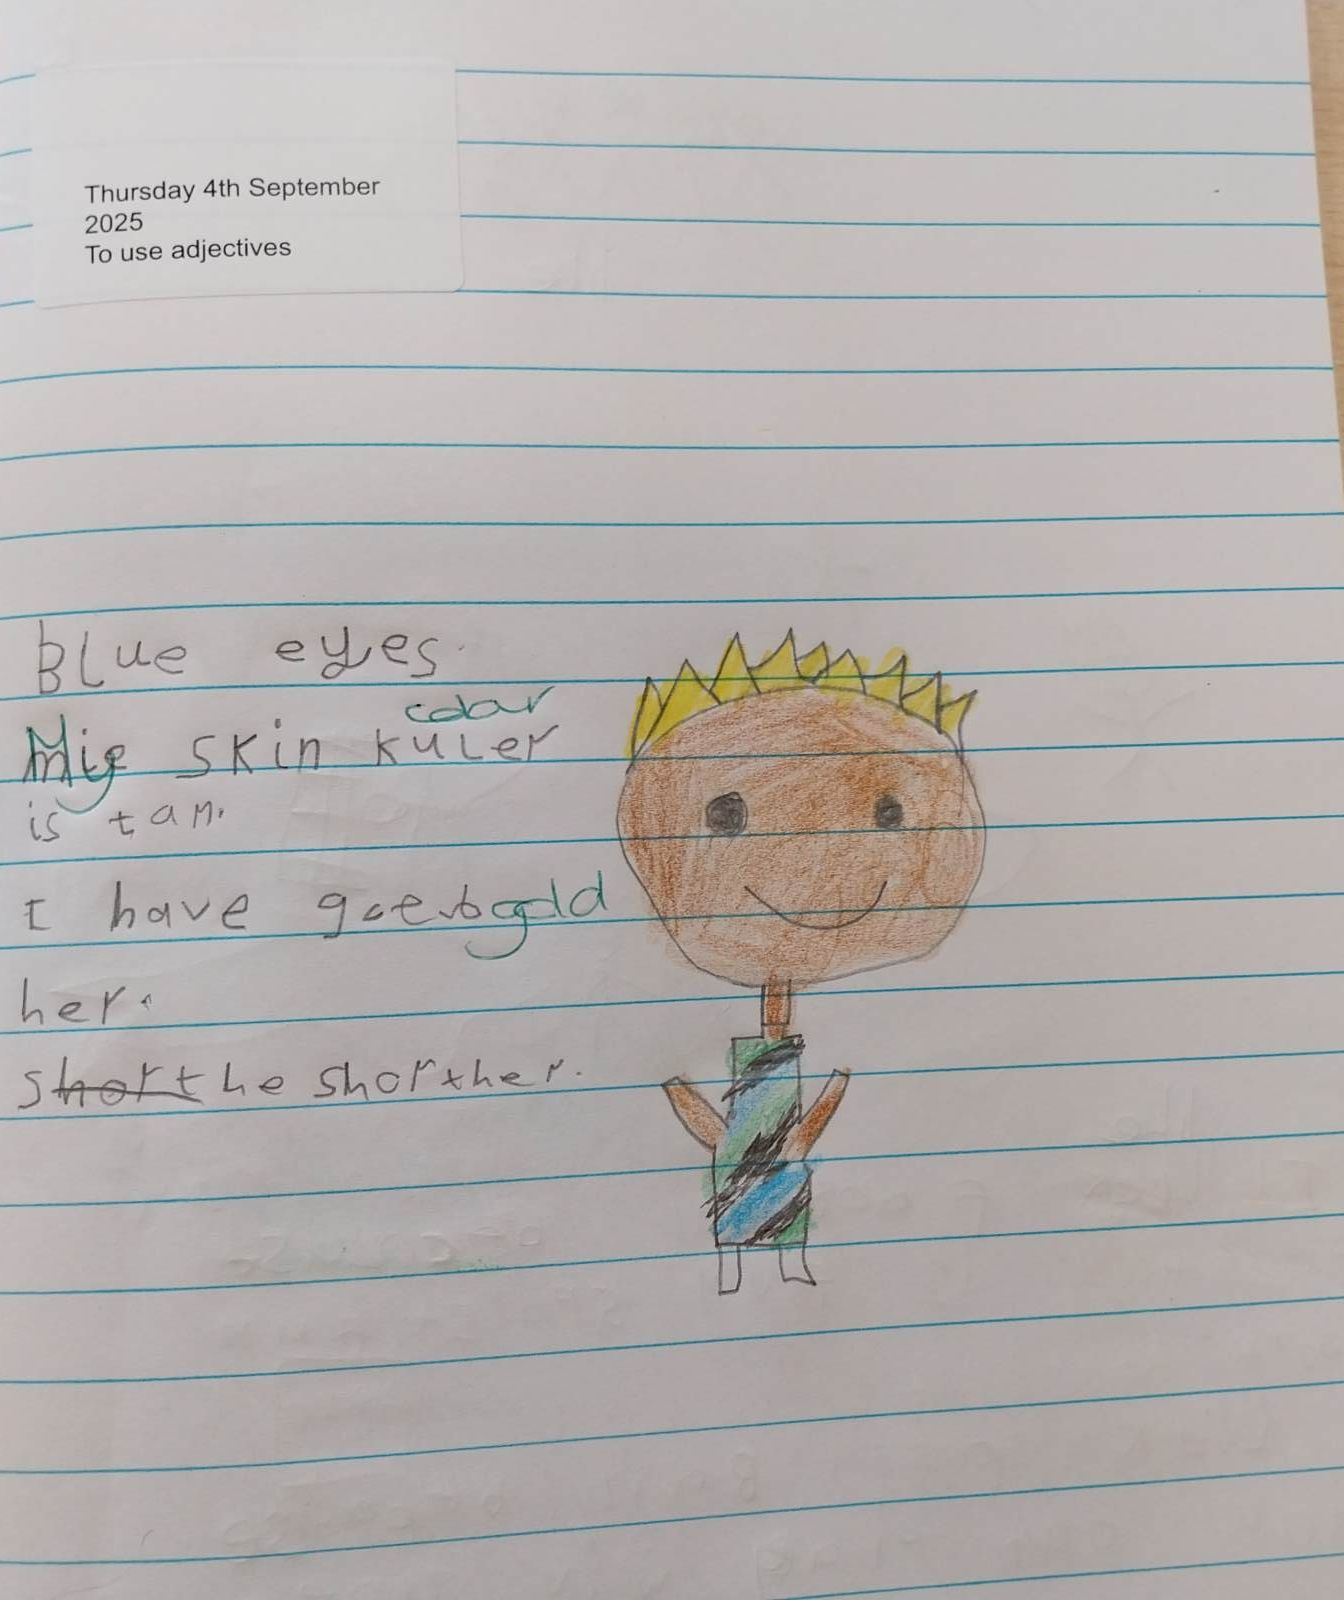 Thursday 4th September
2025
To use adjectives
Blue eyes.
colour
My skin kuler
is tan.
I have gold
her.
short the shorther.